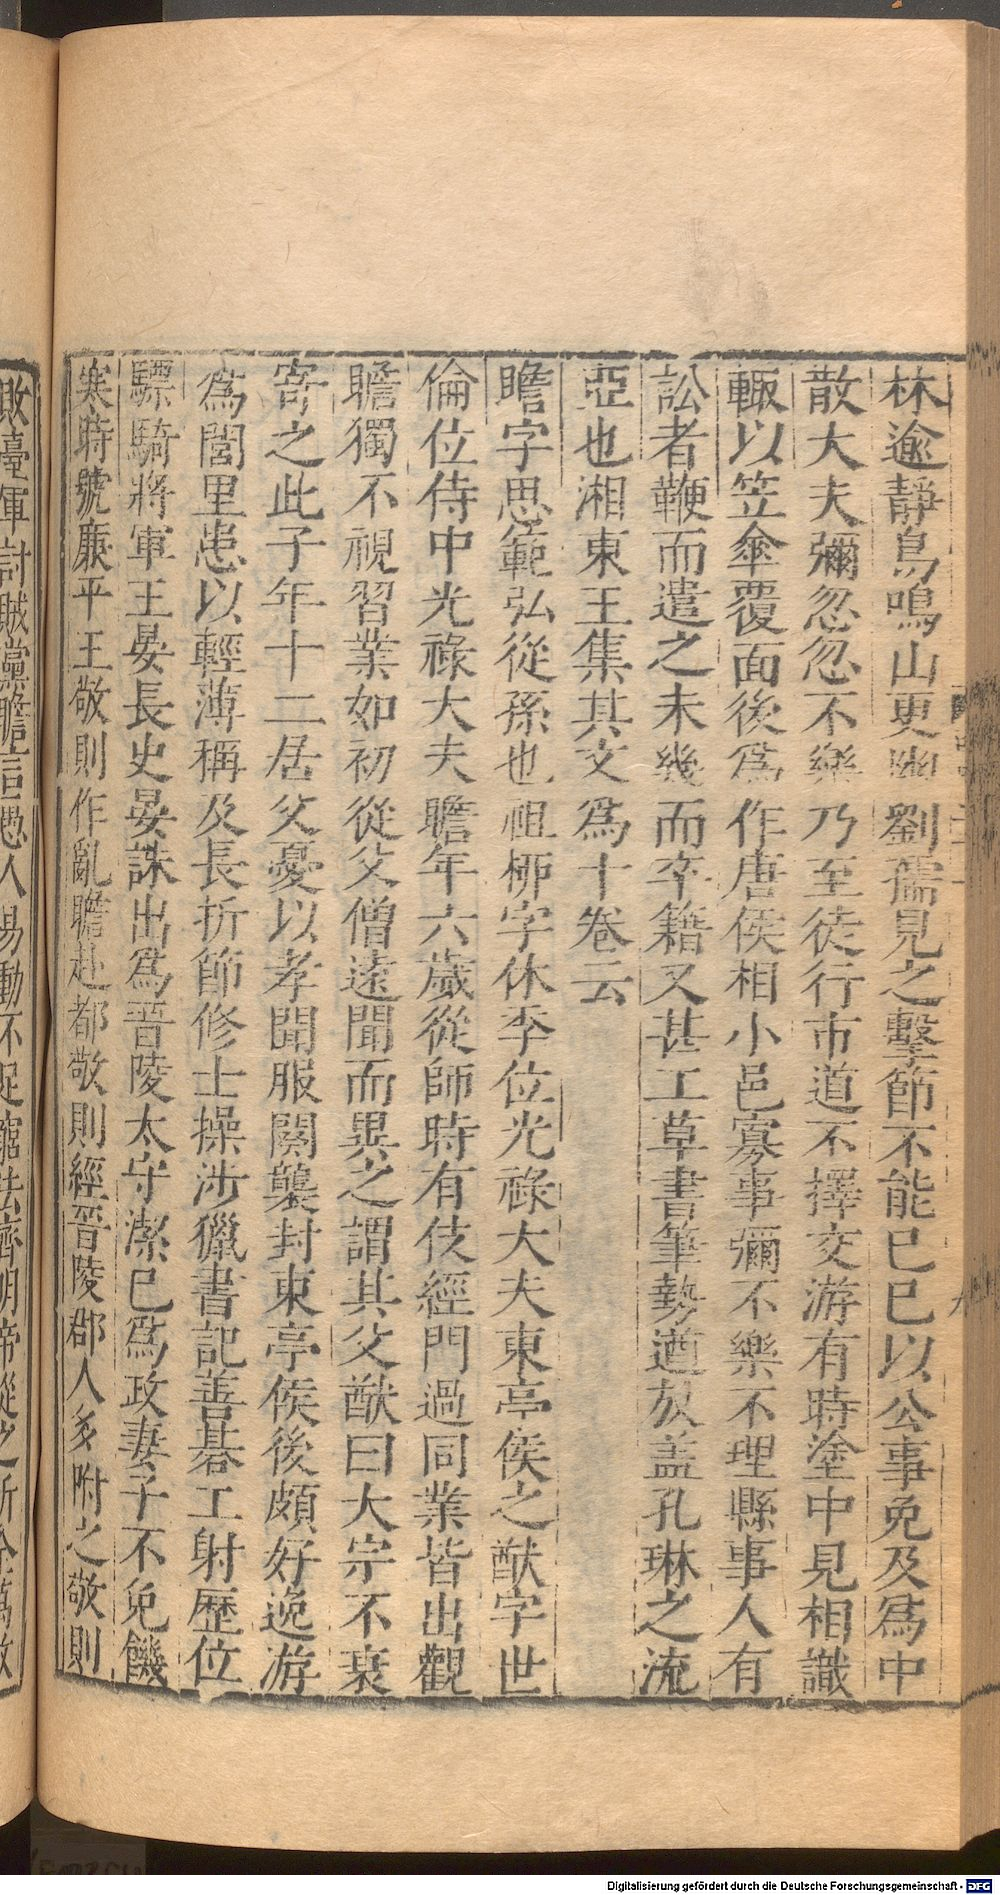 林逾靜鳥鳴山更幽劉孺見之擊節不能已已以公事免及爲中
散大夫彌忽忽不樂乃至徒行市道不擇交游有時塗中見相識
輙以笠傘覆面後爲作唐侯相小邑寡事彌不樂不理縣事人有
訟者鞭而遣之未幾而卒籍又甚工草書筆勢遒放盖孔琳之流
亞也湘東王集其文爲十卷云
瞻字思範弘從孫也祖柳字休季位光祿大夫東亭侯之猷字世
倫位侍中光祿大夫瞻年六歲從師時有伎經門過同業皆出觀
瞻獨不視習業如初從父僧遠聞而異之謂其父猷曰大宗不衰
寄之此子年十二居父憂以孝聞服闋襲封東亭侯後頗好逸游
爲閭里患以輕薄稱及長折節修士操涉獵書記善碁工射歷位
驃騎將軍王晏長史晏誅出爲晋陵太守潔已爲政妻子不免饑
寒時號廉平王敬則作亂瞻赴都敬則經晋陵郡人多附之敬則
敗臺軍討賊黨瞻言愚人易動不足窮法齊明帝從之所全萬數
Digitalisierung gefördert durch die Deutsche Forschungsgemeinschaft - DFG